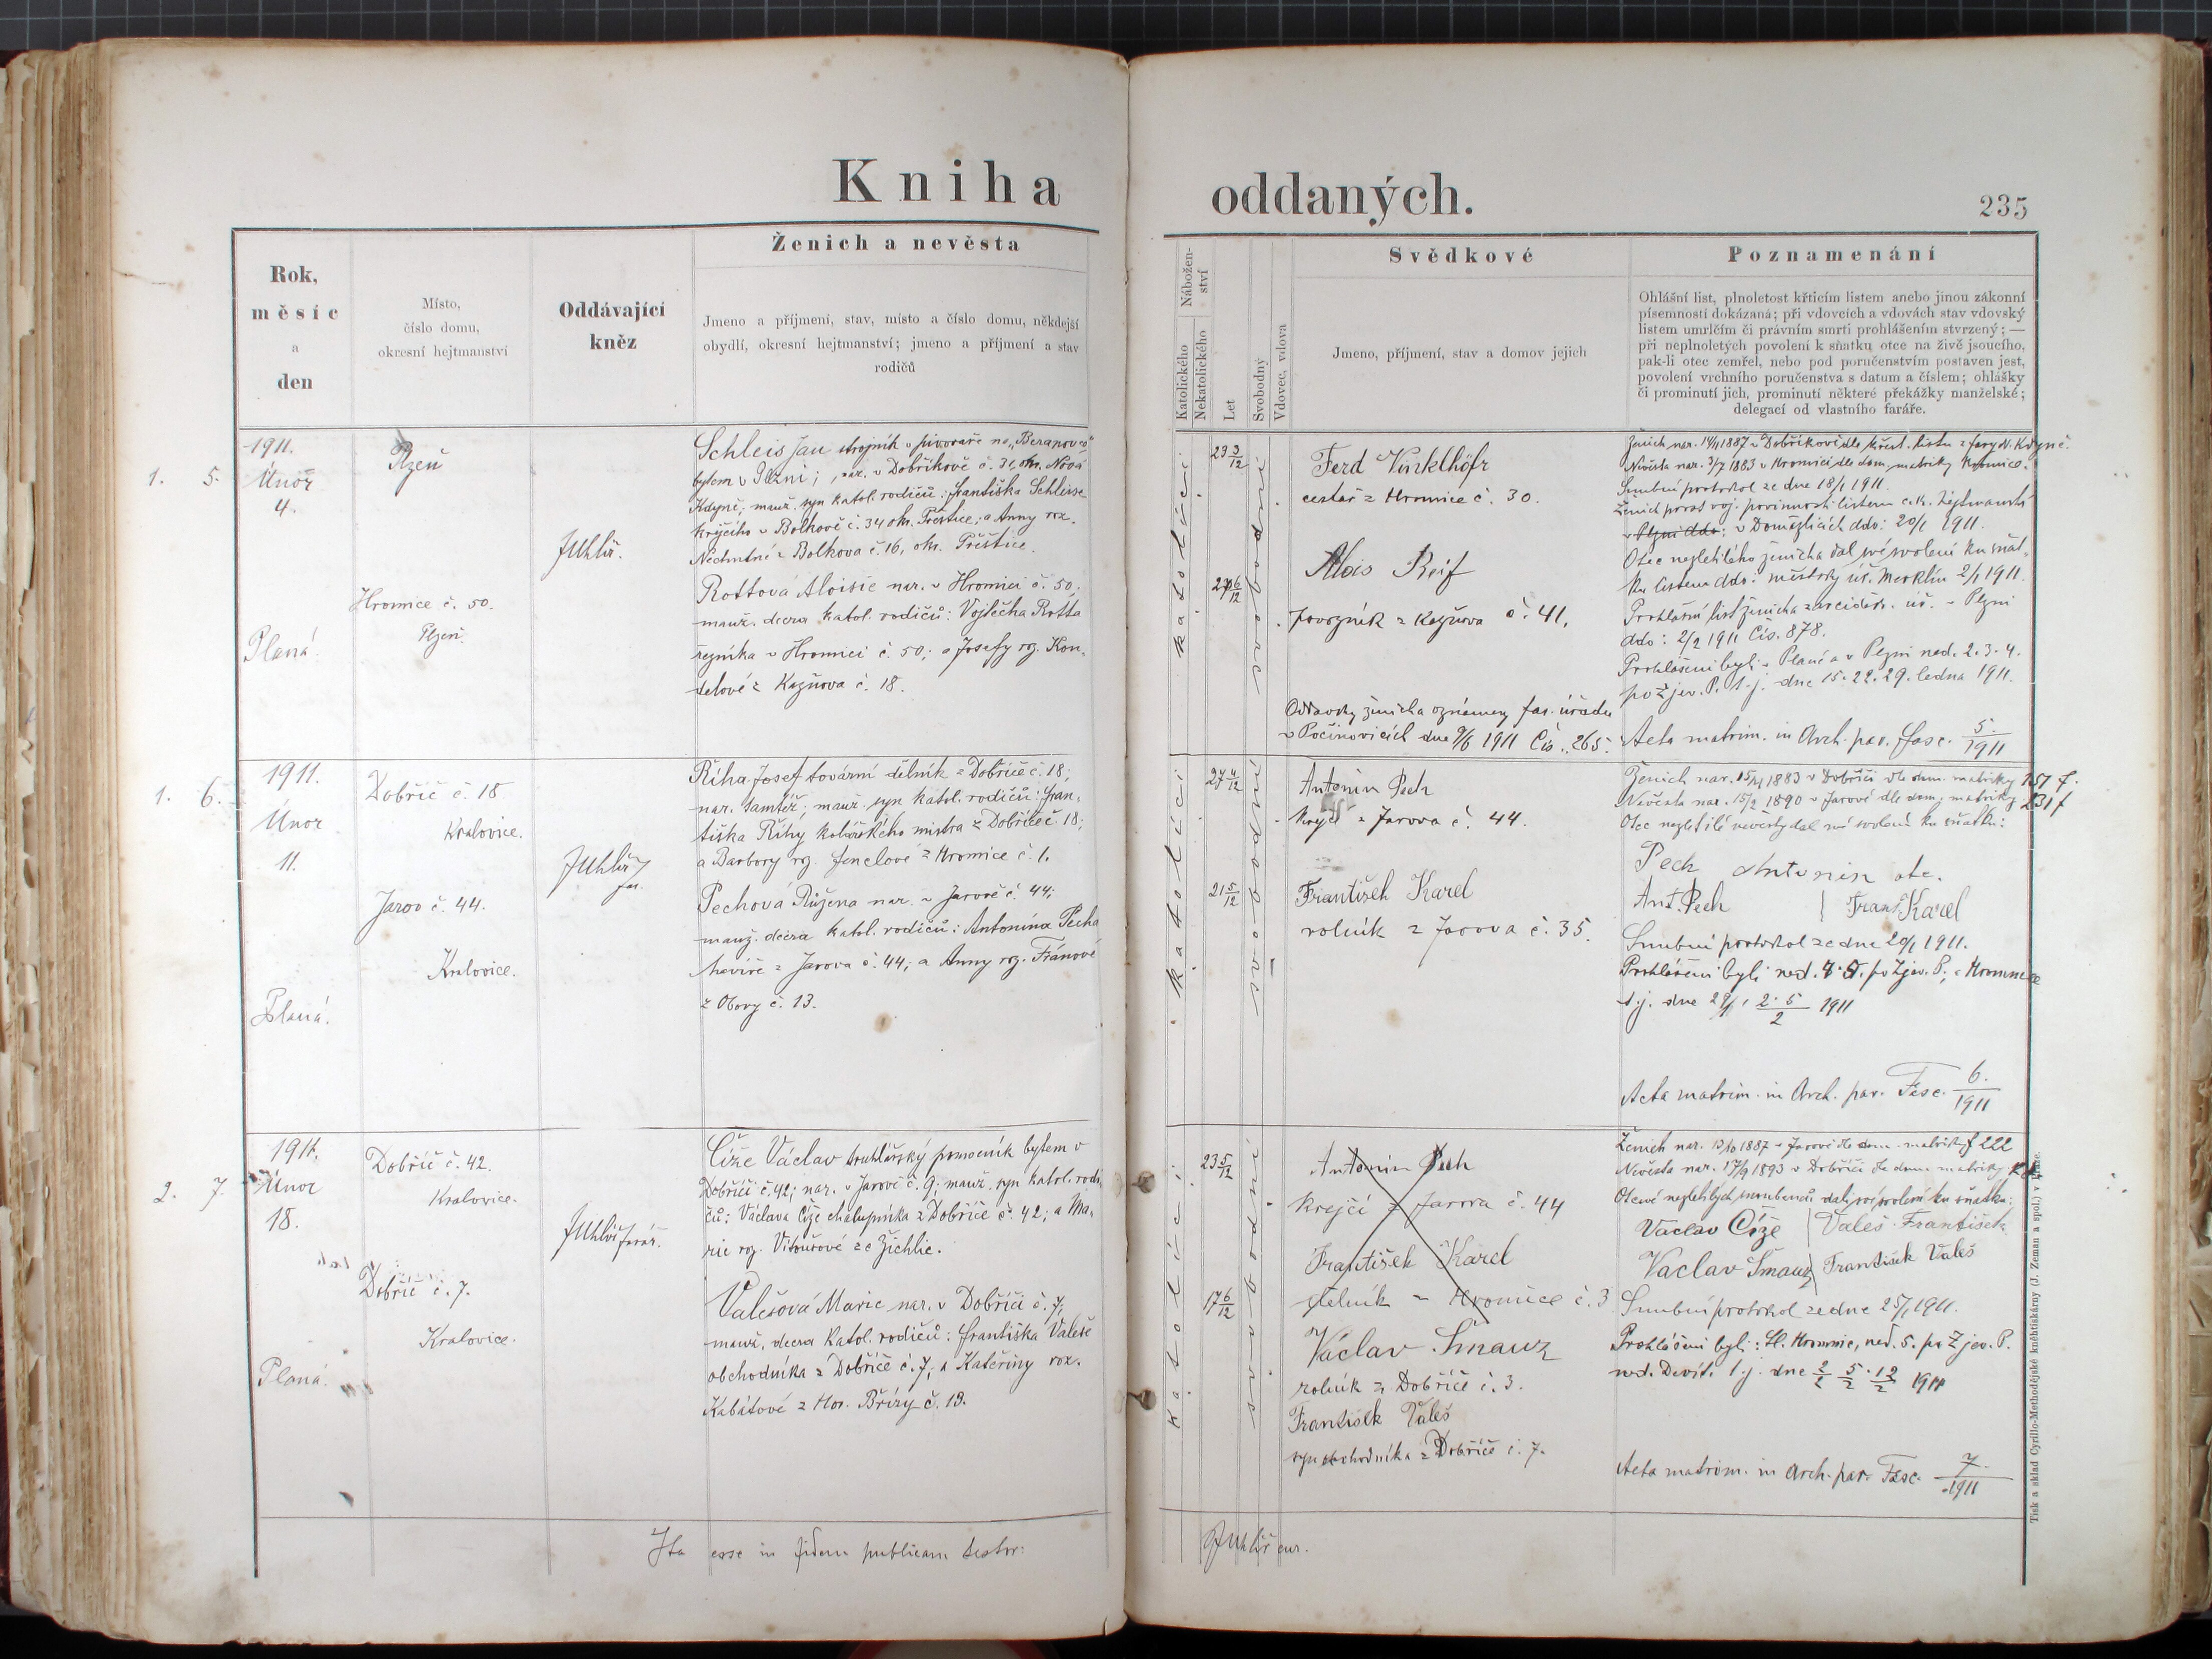 Kniha oddaných.
235
Rok,
měsíc
a
den
Místo,
číslo domu,
okresní hejtmanství
Oddávající
kněz
Ženich a nevěsta
Jmeno a příjmení, stav, místo a číslo domu, někdejší
obydlí, okresní hejtmanství; jmeno a příjmení a stav
rodičů
Nábožen-
ství
Katolického
Nekatolického
Let
Svobodný
Vdovec, vdova
Svědkové
Jmeno, příjmení, stav a domov jejich
Poznamenání
Ohlášní list, plnoletost křticím listem anebo jinou zákonní
písemností dokázaná; při vdovcích a vdovách stav vdovský
listem umrlčím či právním smrti prohlášením stvrzený; —
při neplnoletých povolení k sňatku otce na živě jsoucího,
pak-li otec zemřel, nebo pod poručenstvím postaven jest,
povolení vrchního poručenstva s datum a číslem; ohlášky
či prominutí jich, prominutí některé překážky manželské;
delegací od vlastního faráře.
1. 5.
1911.
Únor
4.
Planá.
Plzeň
Hromice č. 50.
Plzeň.
JUhlíř.
Schleis Jan strojník v pivovaře na „Beranovce"
bytem v Plzni; nar. v Dobříkově č. 31, okr. Nová
Kdyně; manž. syn katol. rodičů: Františka Schleisse
krejčího v Bolkově č. 34 okr. Přeštice; a Anny roz.
Nechutné z Bolkova č. 16, okr. Přeštice.
Rottová Aloisie nar. v Hromici č. 50;
manž. dcera katol. rodičů: Vojtěcha Rotta
řezníka v Hromici č. 50; a Josefy roz. Kon-
delové z Kaznova č. 18.
katolíci
23 3/12
27 6/12
Ferd Vinklhöfr
cestář z Hromice č. 30.
Alois Reif
povozník z Kaznova č. 41.
Oddavky ženicha oznámeny far. úřadu
v Počinovicích dne 9/6 1911 Čís. 265.
Ženich nar. 14/11 1887 v Dobříkově dle křest. listu z fary N. Kdyně.
Nevěsta nar. 3/7 1883 v Hromici dle dom. matriky Hromice.
Snubní protokol ze dne 18/1 1911.
Ženich prost voj. povinnosti listem c.k. hejtmanství
v Plzni ddo: v Domažlicích ddo: 20/1 1911.
Otec nezletilého ženicha dal své svolení ku sňat-
ku listem ddo: městský úř. Merklín 2/1 1911.
Prohlášní list ženicha z arciděk. úř. v Plzni
ddo: 2/2 1911 Čís. 878.
Prohlášeni byli v Plané a v Plzni ned. 2. 3. 4.
po Zjev. P. t.j. dne 15. 22. 29. ledna 1911.
Acta matrim. in Arch. par. fasc. 5./1911
1. 6.
1911.
Únor
11.
Planá.
Dobříč č. 18
Kralovice.
Jarov č. 44.
Kralovice.
JUhlíř
far.
Říha Josef tovární dělník z Dobříče č. 18;
nar. tamtéž; manž. syn katol. rodičů: Fran-
tiška Říhy kolářského mistra z Dobříče č. 18;
a Barbory roz. Fenclové z Hromice č. 1.
Pechová Růžena nar. v Jarově č. 44;
manž. dcera katol. rodičů: Antonína Pecha
havíře z Jarova č. 44; a Anny roz. Fránové
z Obory č. 13.
katolíci
27 4/12
21 5/12
Antonín Pech
krejčí z Jarova č. 44.
František Karel
rolník z Jarova č. 35.
Ženich nar. 15/9 1883 v Dobříči dle dom. matriky 157 f.
Nevěsta nar. 15/2 1890 v Jarově dle dom. matriky 231 f
Otec nezletilé nevěsty dal své svolení ku sňatku:
Pech Antonin otc.
Ant. Pech | Frant Karel
Snubní protokol ze dne 20/1 1911.
Prohlášeni byli ned. 4. 5. po Zjev. P. v Hromnice
t.j. dne 29/1, 2. 5/2 1911
Acta matrim. in Arch. par. Fasc. 6./1911
2. 7.
1911.
Únor
18.
Planá.
Dobříč č. 42.
Kralovice.
Dobříč č. 7.
Kralovice.
JUhlíř farář.
Číže Václav truhlářský pomocník bytem v
Dobříči č. 42; nar. v Jarově č. 9; manž. syn katol. rodi-
čů: Václava Číže chalupníka z Dobříče č. 42; a Ma-
rie roz. Vitoušové ze Žichlic.
Valešová Marie nar. v Dobříči č. 7;
manž. dcera katol. rodičů: Františka Valeše
obchodníka z Dobříče č. 7; a Kateřiny roz.
Kabátové z Hor. Břízy č. 13.
katolíci
23 5/12
17 6/12
Antonin Pech
Krejčí z Jarova č. 44
František Karel
dělník v Hromice č. 3
Václav Šmauz
rolník z Dobříče č. 3.
František Valeš
syn obchodníka z Dobříče č. 7.
Ženich nar. 12/10 1887 v Jarově dle dom. matriky f 222
Nevěsta nar. 17/9 1893 v Dobříči dle dom. matriky
Otcové nezletilých snoubenců dali své svolení ku sňatku:
Vaclav Čiže | Valeš František
Vaclav Šmauz | František Valeš
Snubní protokol ze dne 25/1 1911.
Prohlášeni byli: Hl. Hromnic, ned. 5. po Zjev. P.
ned. Devít. t.j. dne 2/2 5/2 12/2 1911
Acta matrim. in Arch. par. Fasc. 7./1911
Ita esse in fidem publicam testor:
JUhlíř cur.
Tisk a sklad Cyrillo-Methodějské knihtiskárny (J. Zeman a spol.) v Praze.